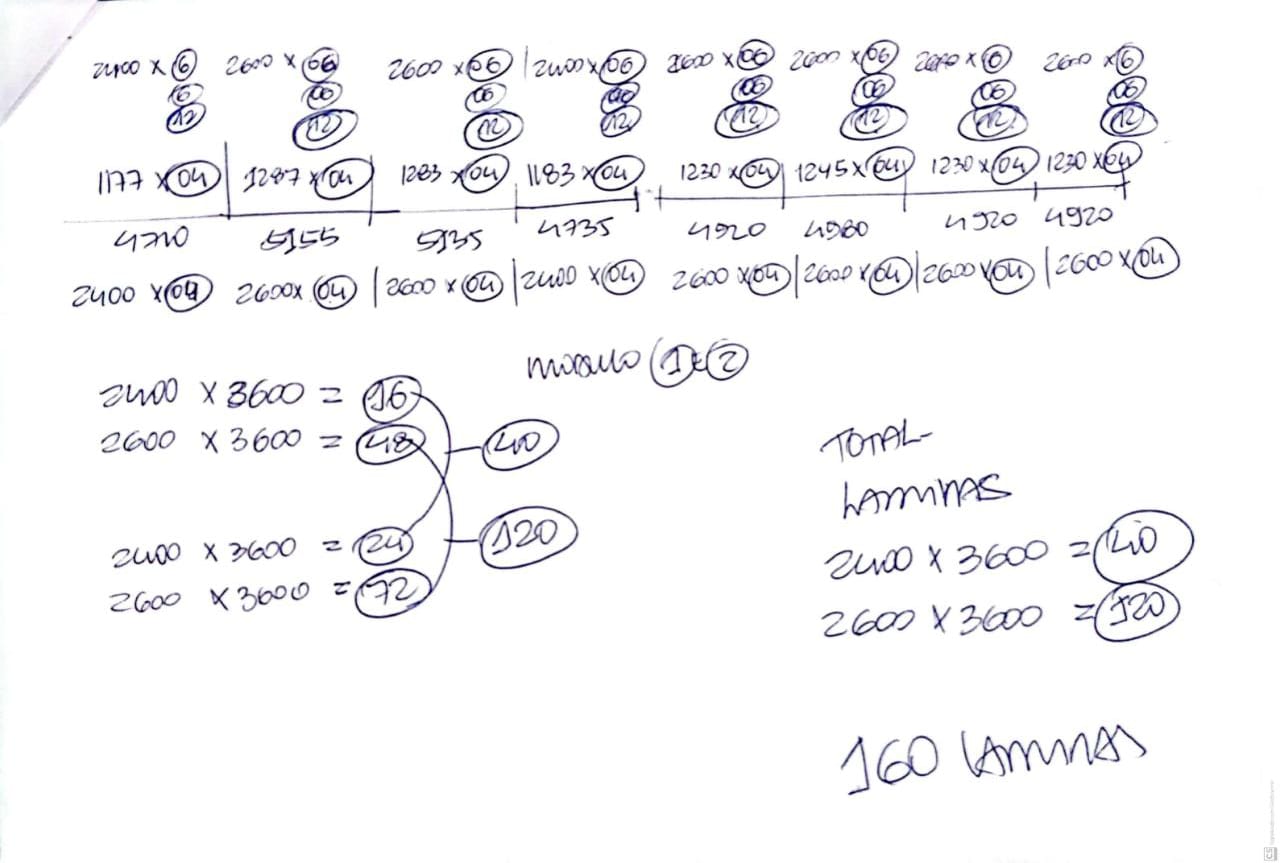 2400 x 6 2600 x 06 2600 x 06 | 2400 x 06 2600 x 06 2600 x 06 2600 x 6 2600 x 6
6 06 06 06 06 06 06 06
12 12 12 12 12 12 12 12
1177 x 04 | 1287 x 04 | 1283 x 04 | 1183 x 04 | 1230 x 04 | 1245 x 04 | 1230 x 04 | 1230 x 04
4710 5155 5135 4735 4920 4980 4920 4920
2400 x 04 2600 x 04 | 2600 x 04 | 2400 x 04 2600 x 04 | 2600 x 04 | 2600 x 04 | 2600 x 04
MODULO 1 E 2
2400 x 3600 = 16
2600 x 3600 = 48 - 40
2400 x 3600 = 24 - 120
2600 x 3600 = 72
TOTAL-
LAMINAS
2400 x 3600 = 40
2600 x 3600 = 120
160 LAMINAS
CS